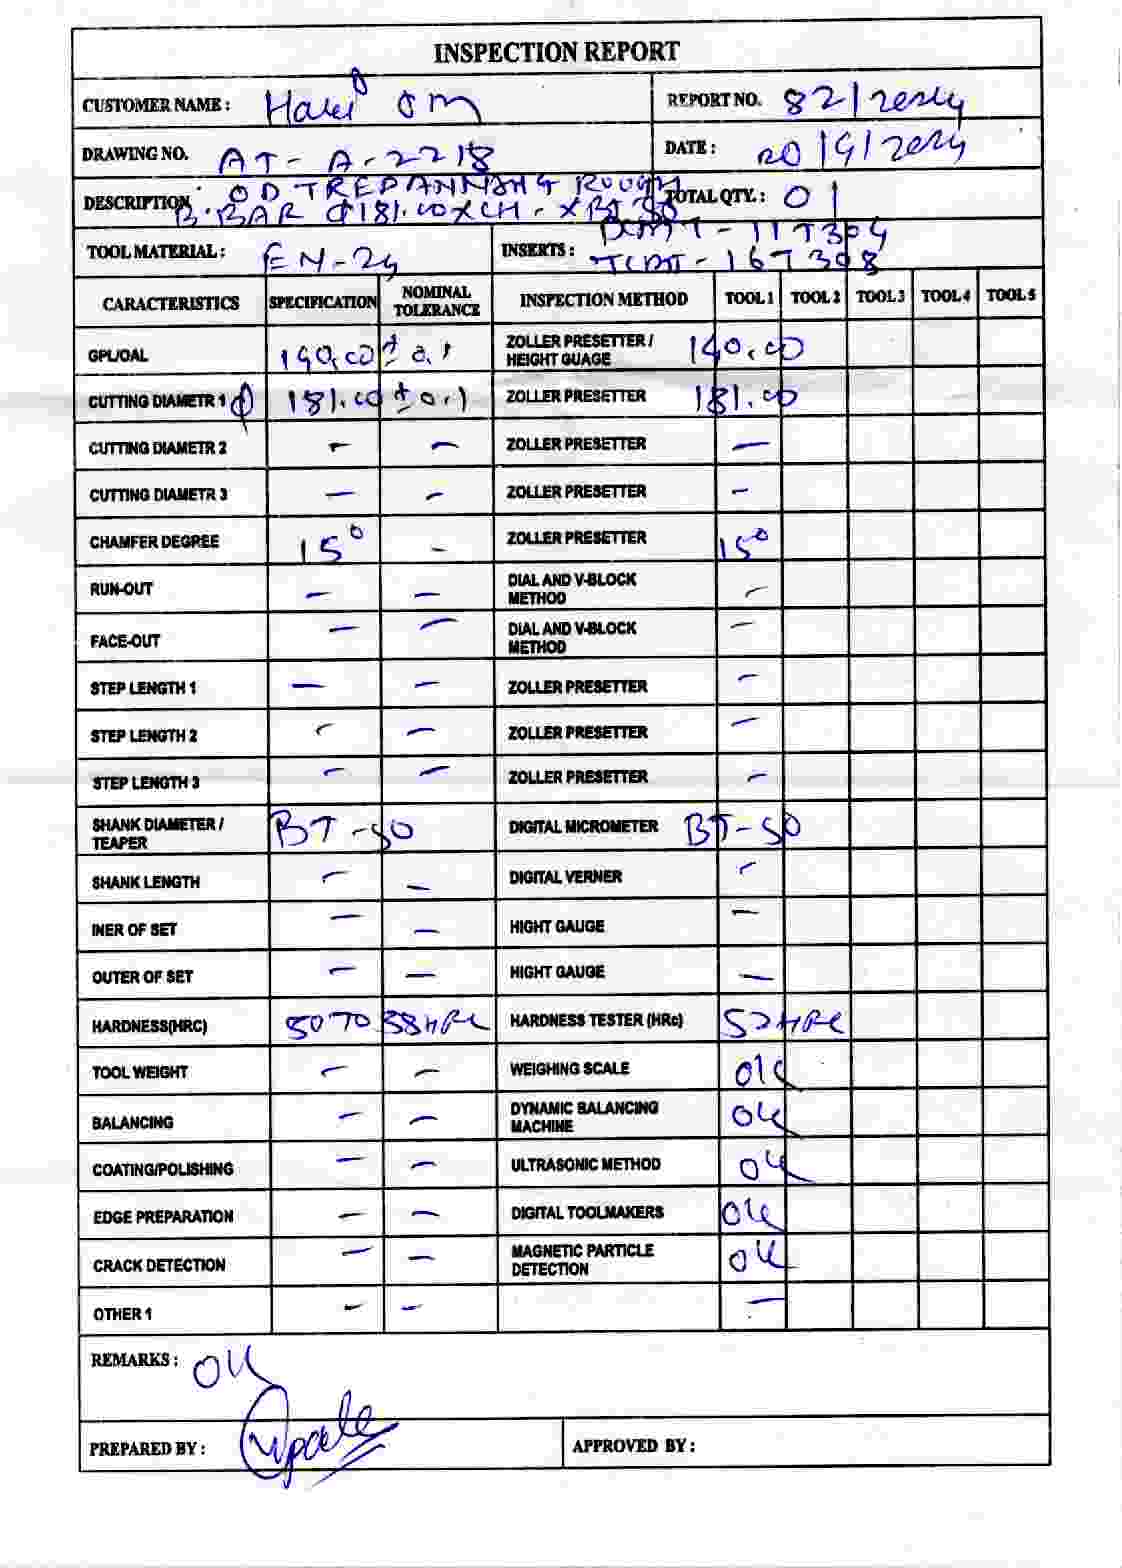 INSPECTION REPORT
CUSTOMER NAME : Hari Om
REPORT NO. 82/
DRAWING NO. AT-A-2218
DATE : 20/9/
DESCRIPTION OD TREPANNING ROUGH
B.BAR Φ181.00XCH-XBT50
TOTAL QTY. : 01
TOOL MATERIAL : EN-24
INSERTS : -11T304
-16T308
CARACTERISTICS SPECIFICATION NOMINAL TOLERANCE INSPECTION METHOD TOOL 1 TOOL 2 TOOL 3 TOOL 4 TOOL 5
GPL/OAL 140.00 ± 0.1 ZOLLER PRESETTER / HEIGHT GUAGE 140.00
CUTTING DIAMETR 1 Φ 181.00 ± 0.1 ZOLLER PRESETTER 181.00
CUTTING DIAMETR 2 - - ZOLLER PRESETTER -
CUTTING DIAMETR 3 - - ZOLLER PRESETTER -
CHAMFER DEGREE 15° - ZOLLER PRESETTER 15°
RUN-OUT - - DIAL AND V-BLOCK METHOD -
FACE-OUT - - DIAL AND V-BLOCK METHOD -
STEP LENGTH 1 - - ZOLLER PRESETTER -
STEP LENGTH 2 - - ZOLLER PRESETTER -
STEP LENGTH 3 - - ZOLLER PRESETTER -
SHANK DIAMETER / TEAPER BT-50 DIGITAL MICROMETER BT-50
SHANK LENGTH - - DIGITAL VERNER -
INER OF SET - - HIGHT GAUGE -
OUTER OF SET - - HIGHT GAUGE -
HARDNESS(HRC) 50 TO 58 HRC HARDNESS TESTER (HRc) 52 HRC
TOOL WEIGHT - - WEIGHING SCALE OK
BALANCING - - DYNAMIC BALANCING MACHINE OK
COATING/POLISHING - - ULTRASONIC METHOD OK
EDGE PREPARATION - - DIGITAL TOOLMAKERS OK
CRACK DETECTION - - MAGNETIC PARTICLE DETECTION OK
OTHER 1 - - -
REMARKS : OK
PREPARED BY :
APPROVED BY :